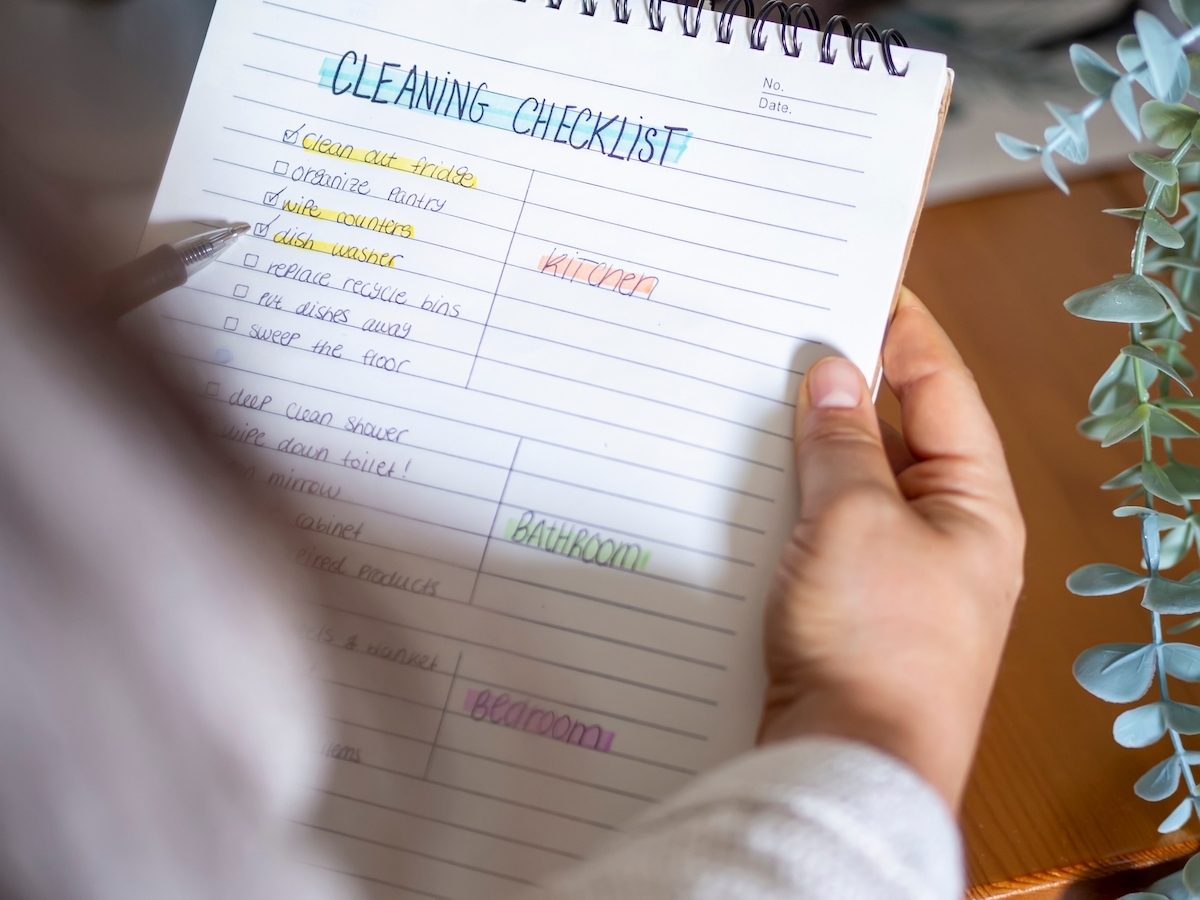 No.
Date.
CLEANING CHECKLIST
clean out fridge
organize pantry
wipe counters
dish washer
replace recycle bins
put dishes away
sweep the floor
kitchen
deep clean shower
wipe down toilet!
mirrow
cabinet
products
BATHROOM
& blanket
items
Bedroom